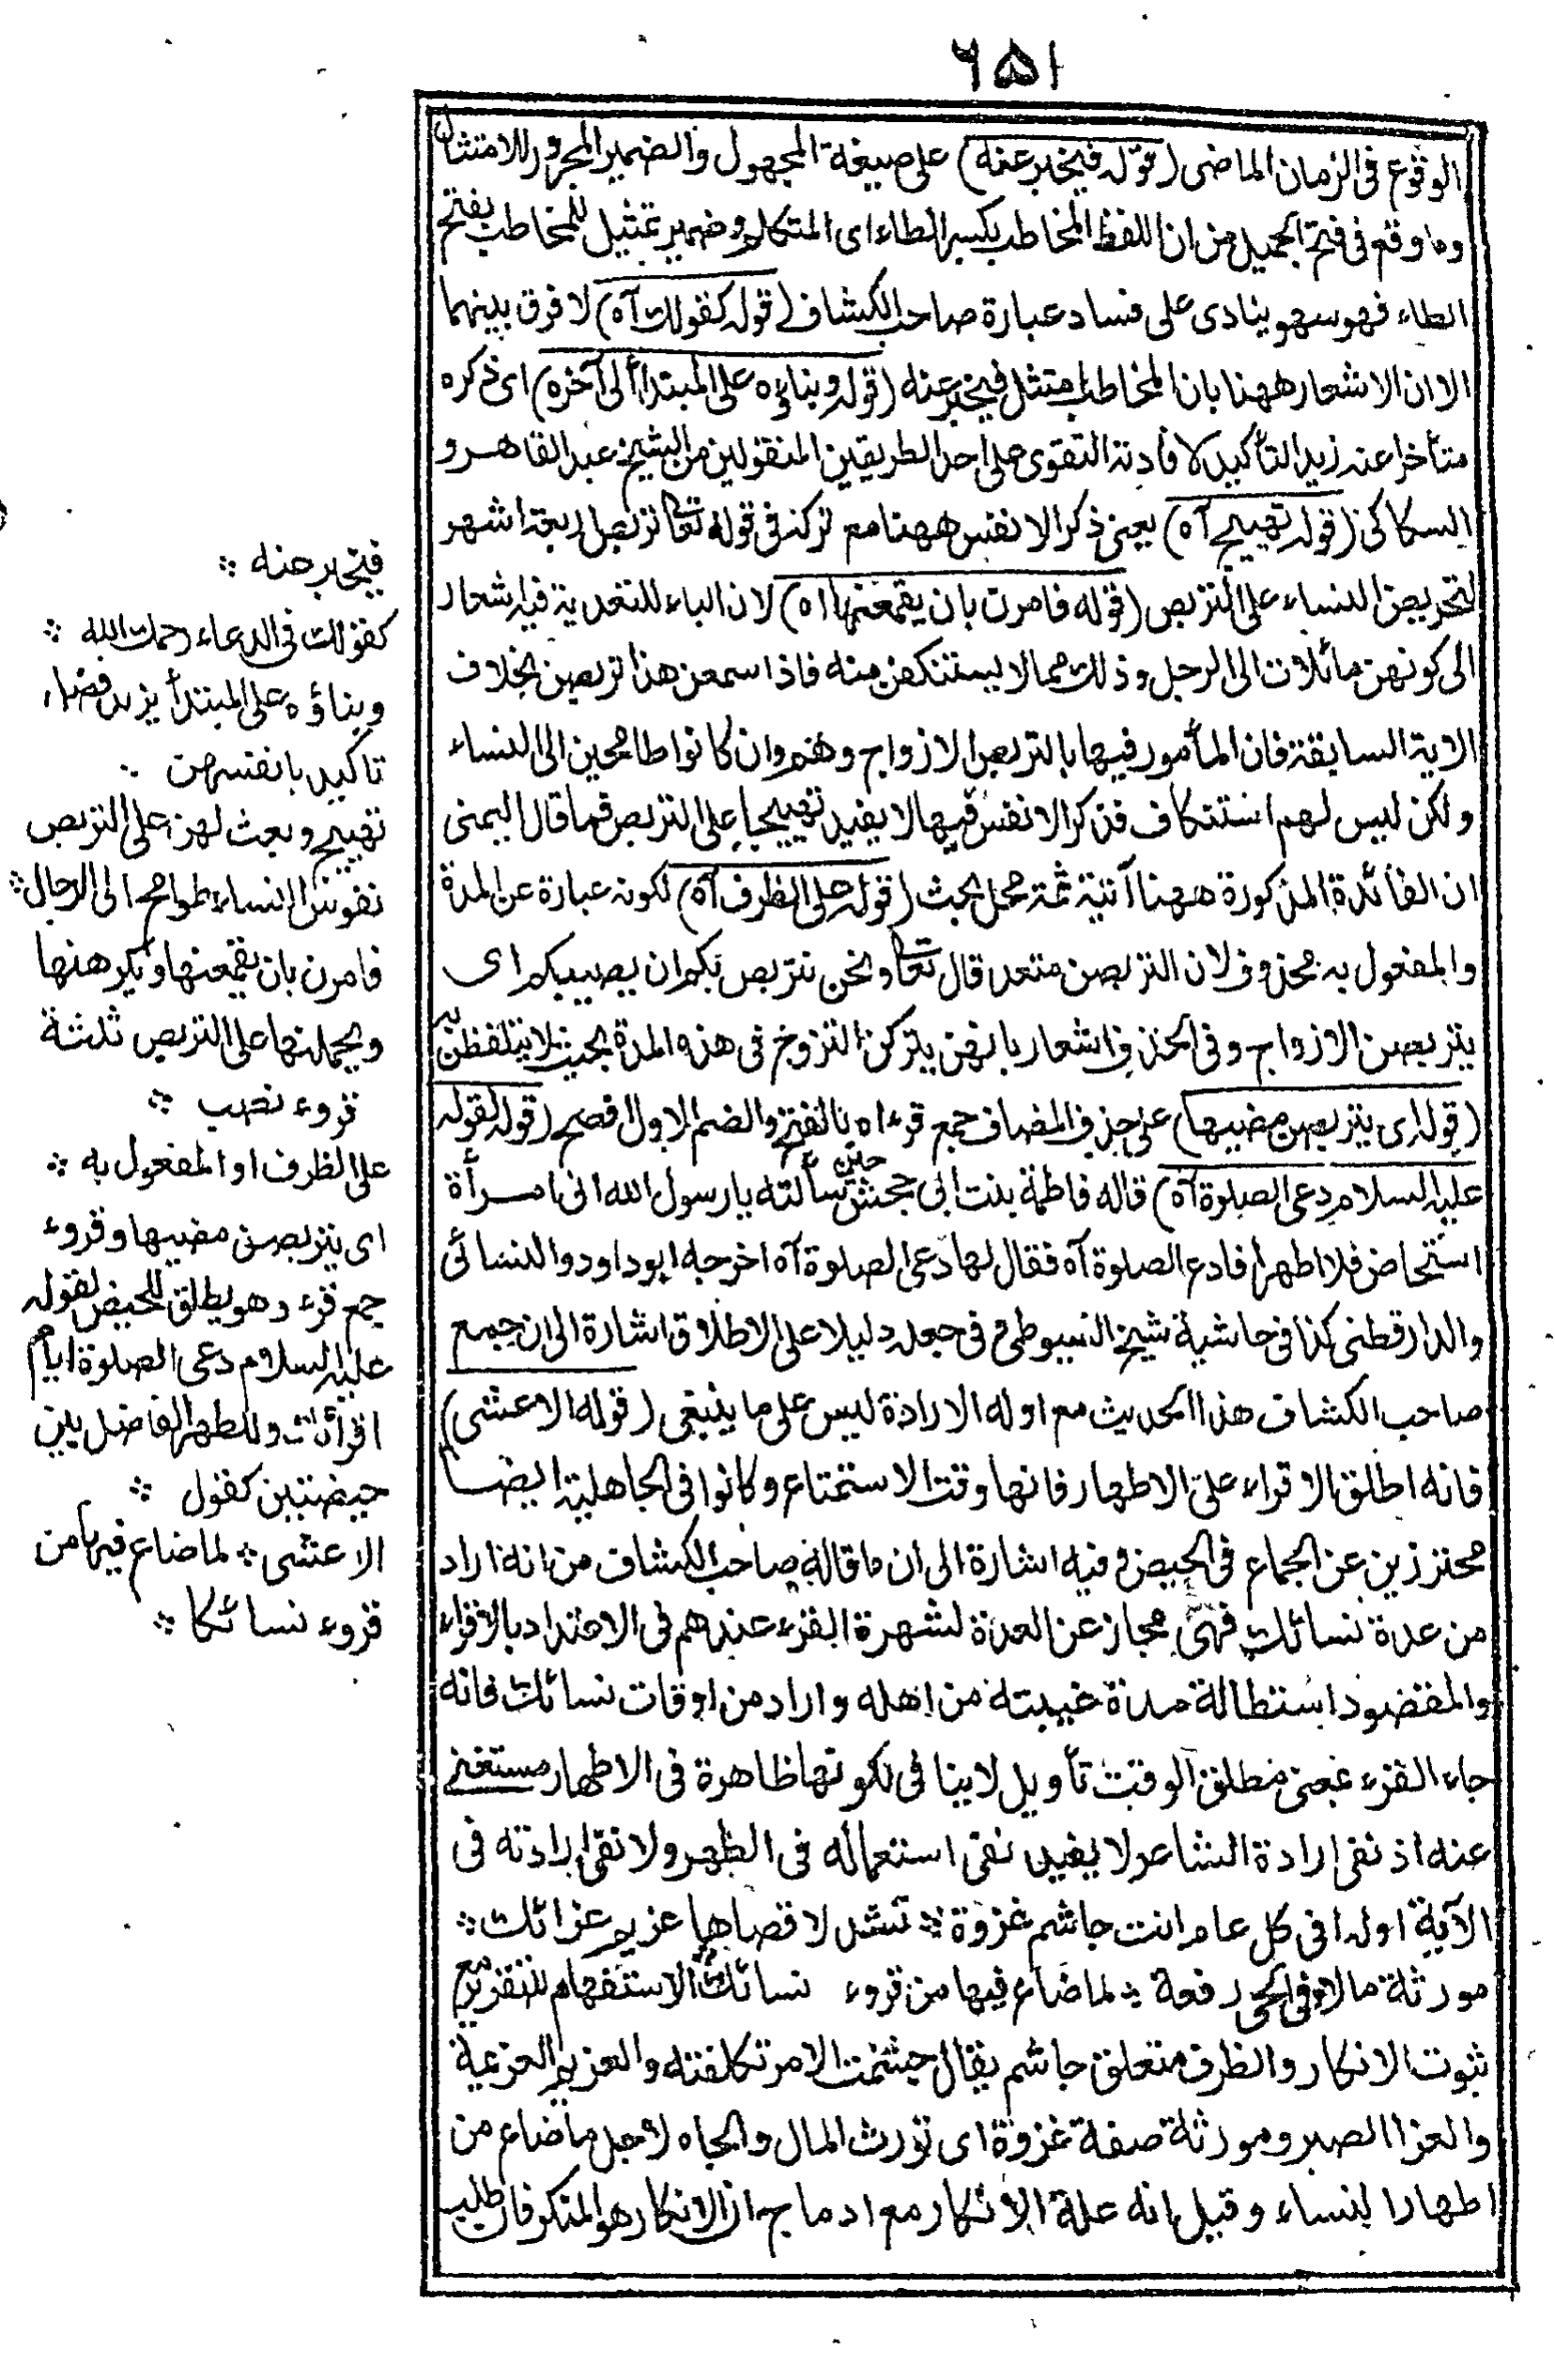 ٦٥١
الوقوع فى الزمان الماضى (قوله فيخبر عنه) على صيغة المجهول والضمير المجرور للامتثال
وما وقع فى فتح الجميل من ان اللفظ المخاطب بكسر الطاء اى المتكلم وضمير تمثيل للمخاطب بفتح
الطاء فهو سهو ينادى على فساد عبارة صاحب الكشاف (قوله كقولك آه) لا فرق بينهما
الا ان الاشعار ههنا بان المخاطب امتثل فيخبر عنه (قوله وبناؤه على المبتدأ الى آخره) اى ذكره
متأخرا عنه زيد التأكيد لافادته التقوى على احد الطريقين المنقولين من الشيخ عبد القاهر و
السكاكى (قوله تهييج آه) يعنى ذكر الانفس ههنا مع تركه فى قوله تعالى تربص اربعة اشهر
لتحريض النساء على التربص (قوله فامرن بان يقمعنها اه) لان الباء للتعدية فيه اشعار
الى كونهن مائلات الى الرجل وذلك مما لا يستنكفن منه فاذا سمعن هذا تربصن بخلاف
الاية السابقة فان المأمور فيها بالتربص الازواج وهم وان كانوا طامحين الى النساء
ولكن ليس لهم استنكاف فذكر الانفس فيها لا يفيد تهييجا على التربص فما قال اليمنى
ان الفائدة المذكورة ههنا آتية ثمة محل بحث (قوله على الظرف آه) لكونه عبارة عن المدة
والمفعول به محذوف لان التربص متعد قال تعالى ونحن نتربص بكم ان يصيبكم اى
يتربصن الازواج وفى الحذف اشعار بانهن يتركن التزوج فى هذه المدة بحيث لا يتلفظن به
(قوله اى يتربصن مضيها) على حذف المضاف جمع قرء اه بالفتح والضم الاول افصح (قوله لقوله
عليه السلام دعى الصلوة آه) قاله فاطمة بنت ابى جحش حين سألته يا رسول الله انى امرأة
استحاض فلا اطهر أفادع الصلوة آه فقال لها دعى الصلوة آه اخرجه ابوداود والنسائى
والدارقطنى كذا فى حاشية شيخ السيوطى وفى جعله دليلا على الاطلاق اشارة الى ان جمع
صاحب الكشاف هذا الحديث مع اوله الارادة ليس على ما ينبغى (قوله الاعشى)
فانه اطلق الاقراء على الاطهار فانها وقت الاستمتاع وكانوا فى الجاهلية ايضا
محترزين عن الجماع فى الحيض وفيه اشارة الى ان ما قاله صاحب الكشاف من انه اراد
من عدة نسائك فهى مجاز عن العدة لشهرة القرء عندهم فى الاعتداد بالاقراء
والمقصود استطالة مدة غيبته من اهله واراد من اوقات نسائك فانه
جاء القرء بمعنى مطلق الوقت تأويل لا ينافى لكونها ظاهرة فى الاطهار مستغنى
عنه اذ نفى ارادة الشاعر لا يفيد نفى استعماله فى الطهر ولا نفى ارادته فى
الآية اوله افى كل عام انت جاشم غزوة ؞ تشد لاقصاها عزيم عزائك ؞
مورثة مالا وفى الحى رفعة ؞ لما ضاع فيها من قروء نسائك الاستفهام للتقرير مع
ثبوت الانكار والظرف متعلق جاشم يقال جشمت الامر تكلفته والعزيم العزيمة
والعزا الصبر ومورثة صفة غزوة اى تورث المال والجاه لاجل ما ضاع من
اطهار النساء وقيل انه علة الانكار مع ادماج ان الانكار هو المنكر فان طلب
فيخبر عنه ؞
كقولك فى الدعاء رحمك الله ؞
وبناؤه على المبتدأ يزيد فضل
تاكيد بانفسهن ؞
تهييج وبعث لهن على التربص
نفوس النساء طوامح الى الرجال ؞
فامرن بان يقمعنها ويكرهنها
ويحملنها على التربص ثلثة
قروء نصب ؞
على الظرف او المفعول به ؞
اى يتربصن مضيها وقروء
جمع قرء وهو يطلق للحيض لقوله
عليه السلام دعى الصلوة ايام
اقرائك وللطهر الفاضل بين
حيضتين كقول ؞
الاعشى ؞ لما ضاع فيها من
قروء نسائكا ؞